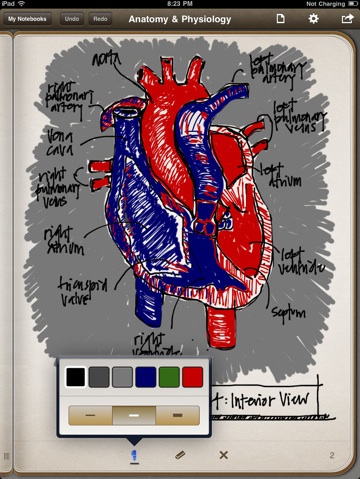 iPad
8:23 PM
Not Charging
My Notebooks
Undo
Redo
Anatomy & Physiology
aorta
left
pulmonary
artery
right
pulmonary
artery
left
pulmonary
veins
vena
cava
right
pulmonary
veins
left
atrium
right
atrium
left
ventricle
tricuspid
valve
septum
right
ventricle
t: Interior View
2